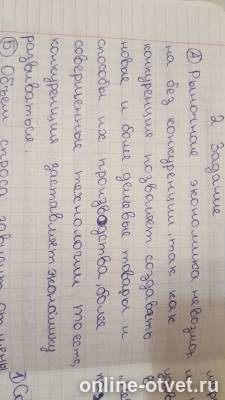 2 Задание
А) Рыночная экономика невозмож
на без конкуренции, так как
конкуренция позволяет создавать
новые и более дешевые товары и
способы их производства, более
совершенные технологии, то есть,
конкуренция заставляет экономику
развиваться.
Б) Объем спроса зависит от цены
online-otvet.ru